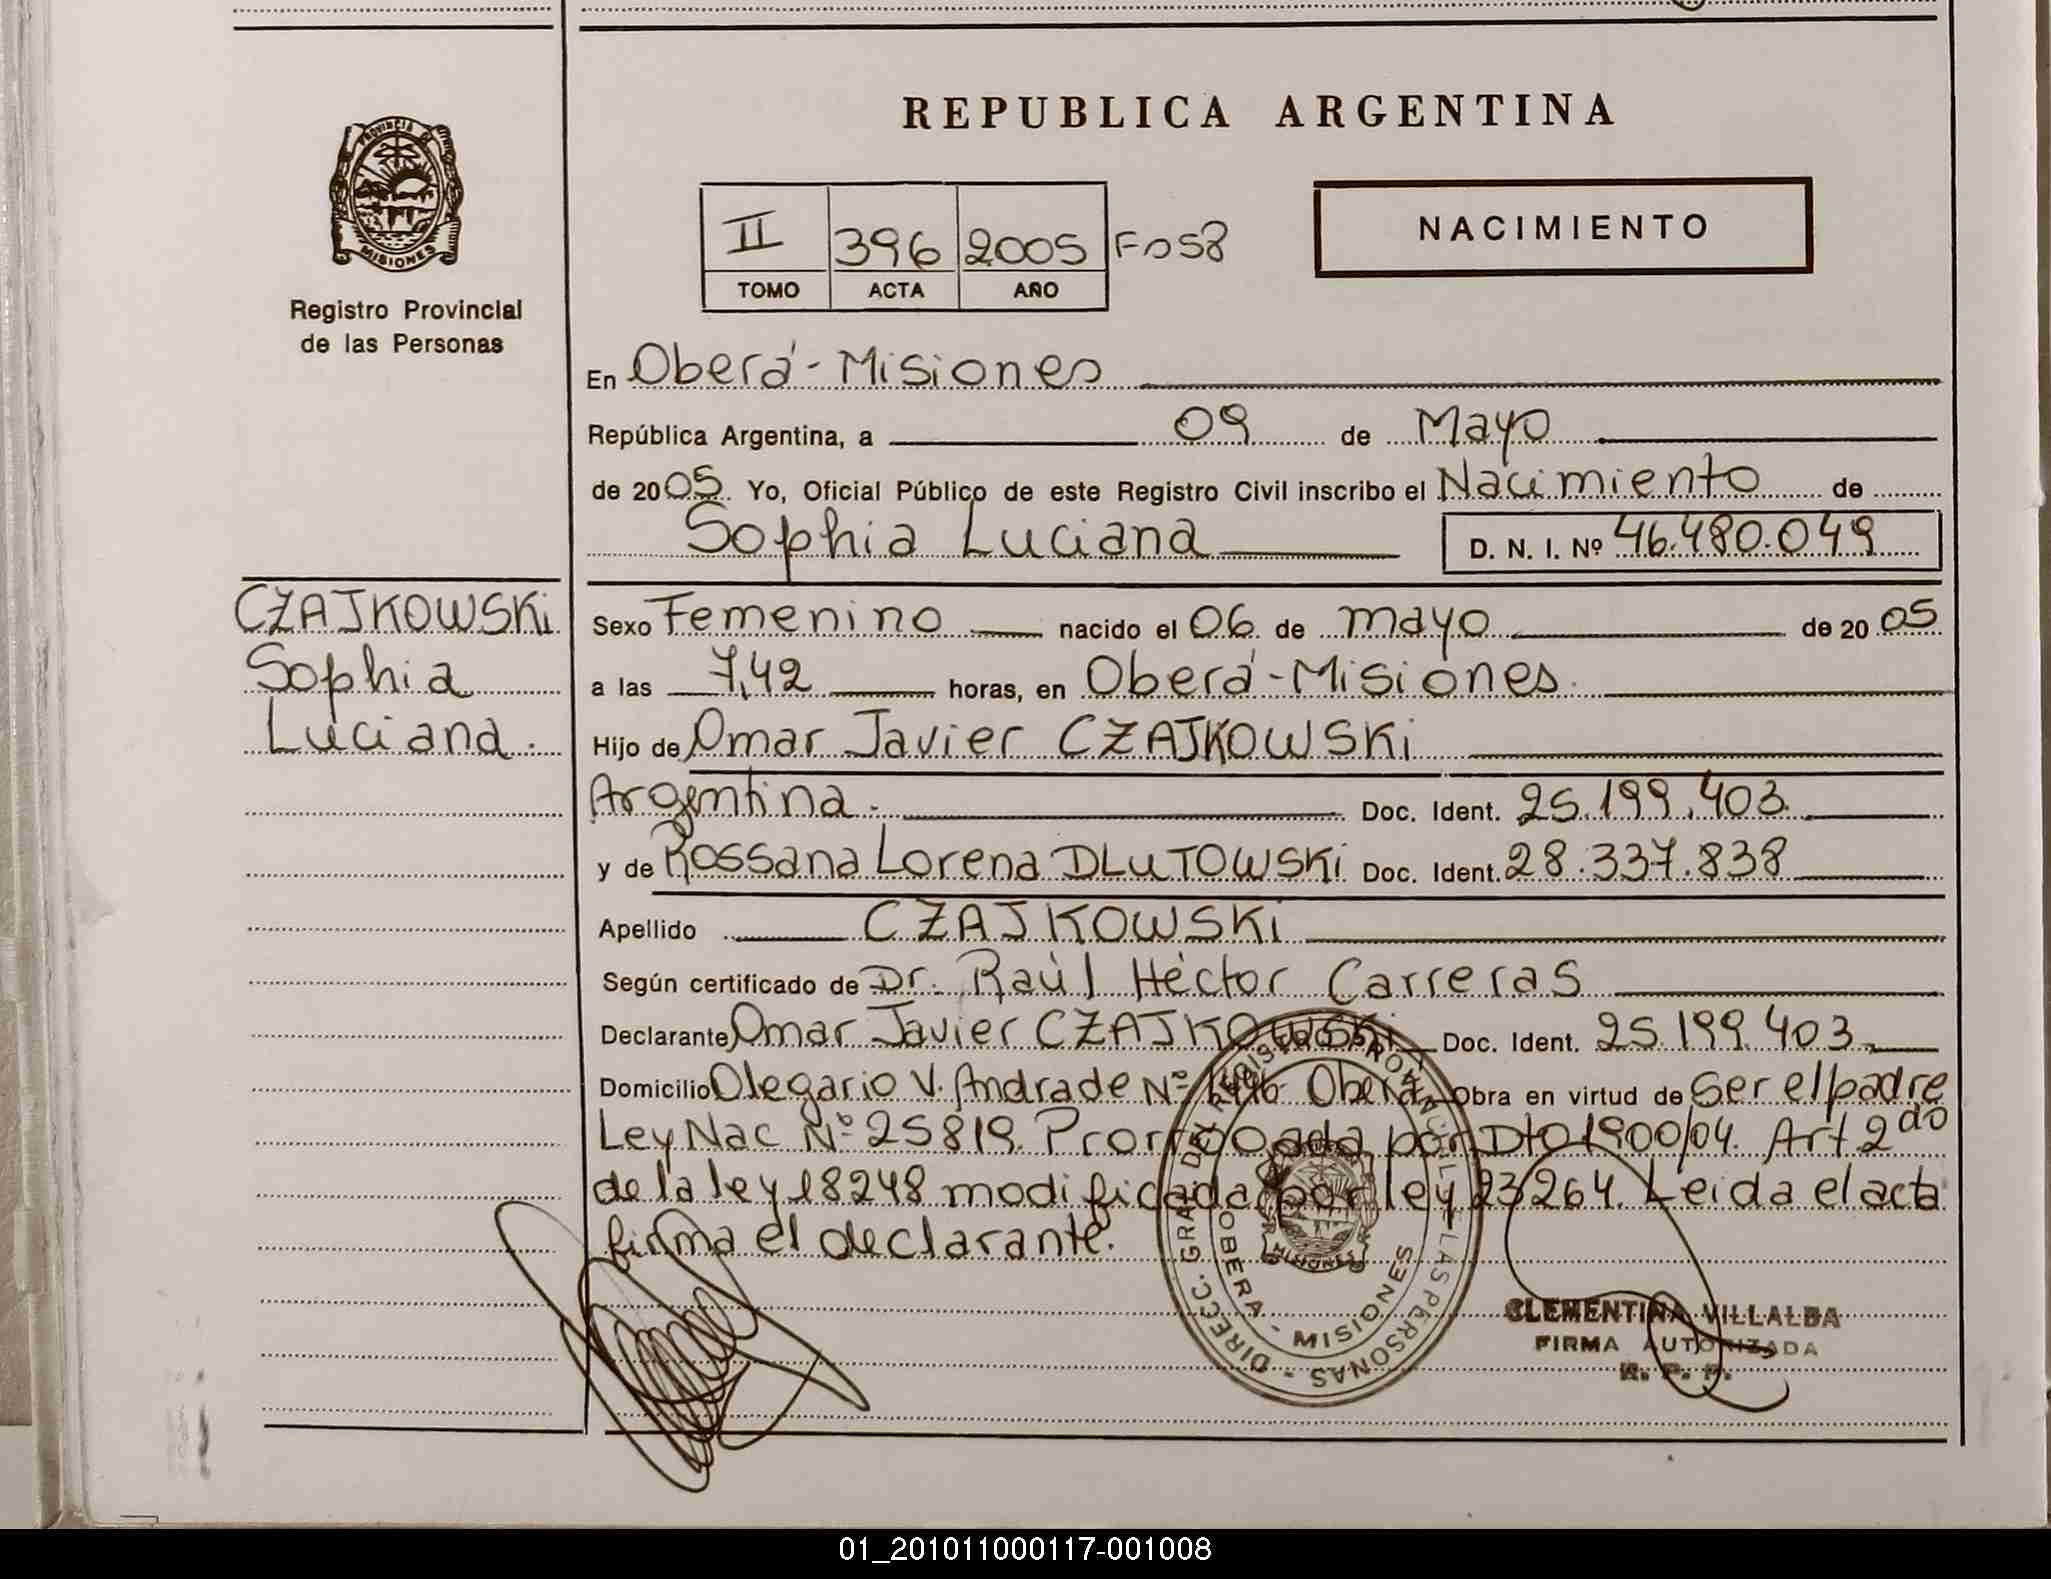 REPUBLICA ARGENTINA
PROVINCIA DE
MISIONES
Registro Provincial
de las Personas
II 396 2005 Fo58
TOMO ACTA AÑO
NACIMIENTO
En Oberá-Misiones
República Argentina, a 09 de Mayo
de 2005. Yo, Oficial Público de este Registro Civil inscribo el Nacimiento de
Sophia Luciana D. N. I. Nº 46.480.049
CZAJKOWSKi
Sophia
Luciana.
Sexo Femenino nacido el 06 de mayo de 2005
a las 7,42 horas, en Oberá-Misiones.
Hijo de Omar Javier CZAJKOWSKi
Argentina. Doc. Ident. 25.199.403
y de Rossana Lorena DLUTOWSKi Doc. Ident. 28.337.838
Apellido CZAJKOWSKi
Según certificado de Dr. Raúl Héctor Carreras
Declarante Omar Javier CZAJKOWSKi Doc. Ident. 25.199.403
Domicilio Olegario V. Andrade Nº Oberá Obra en virtud de Ser el padre
Ley Nac Nº 25819. Prorrogada por Dto 1900/04. Art 2do
de la ley 18248 modificada por ley 23264. Leida el acta
firma el declarante.
DIRECC. GRAL. DEL REGISTRO PROVINCIAL DE LAS PERSONAS -
OBERA - MISIONES
MISIONES
CLEMENTINA VILLALBA
FIRMA AUTORIZADA
R. P. P.
01_201011000117-001008